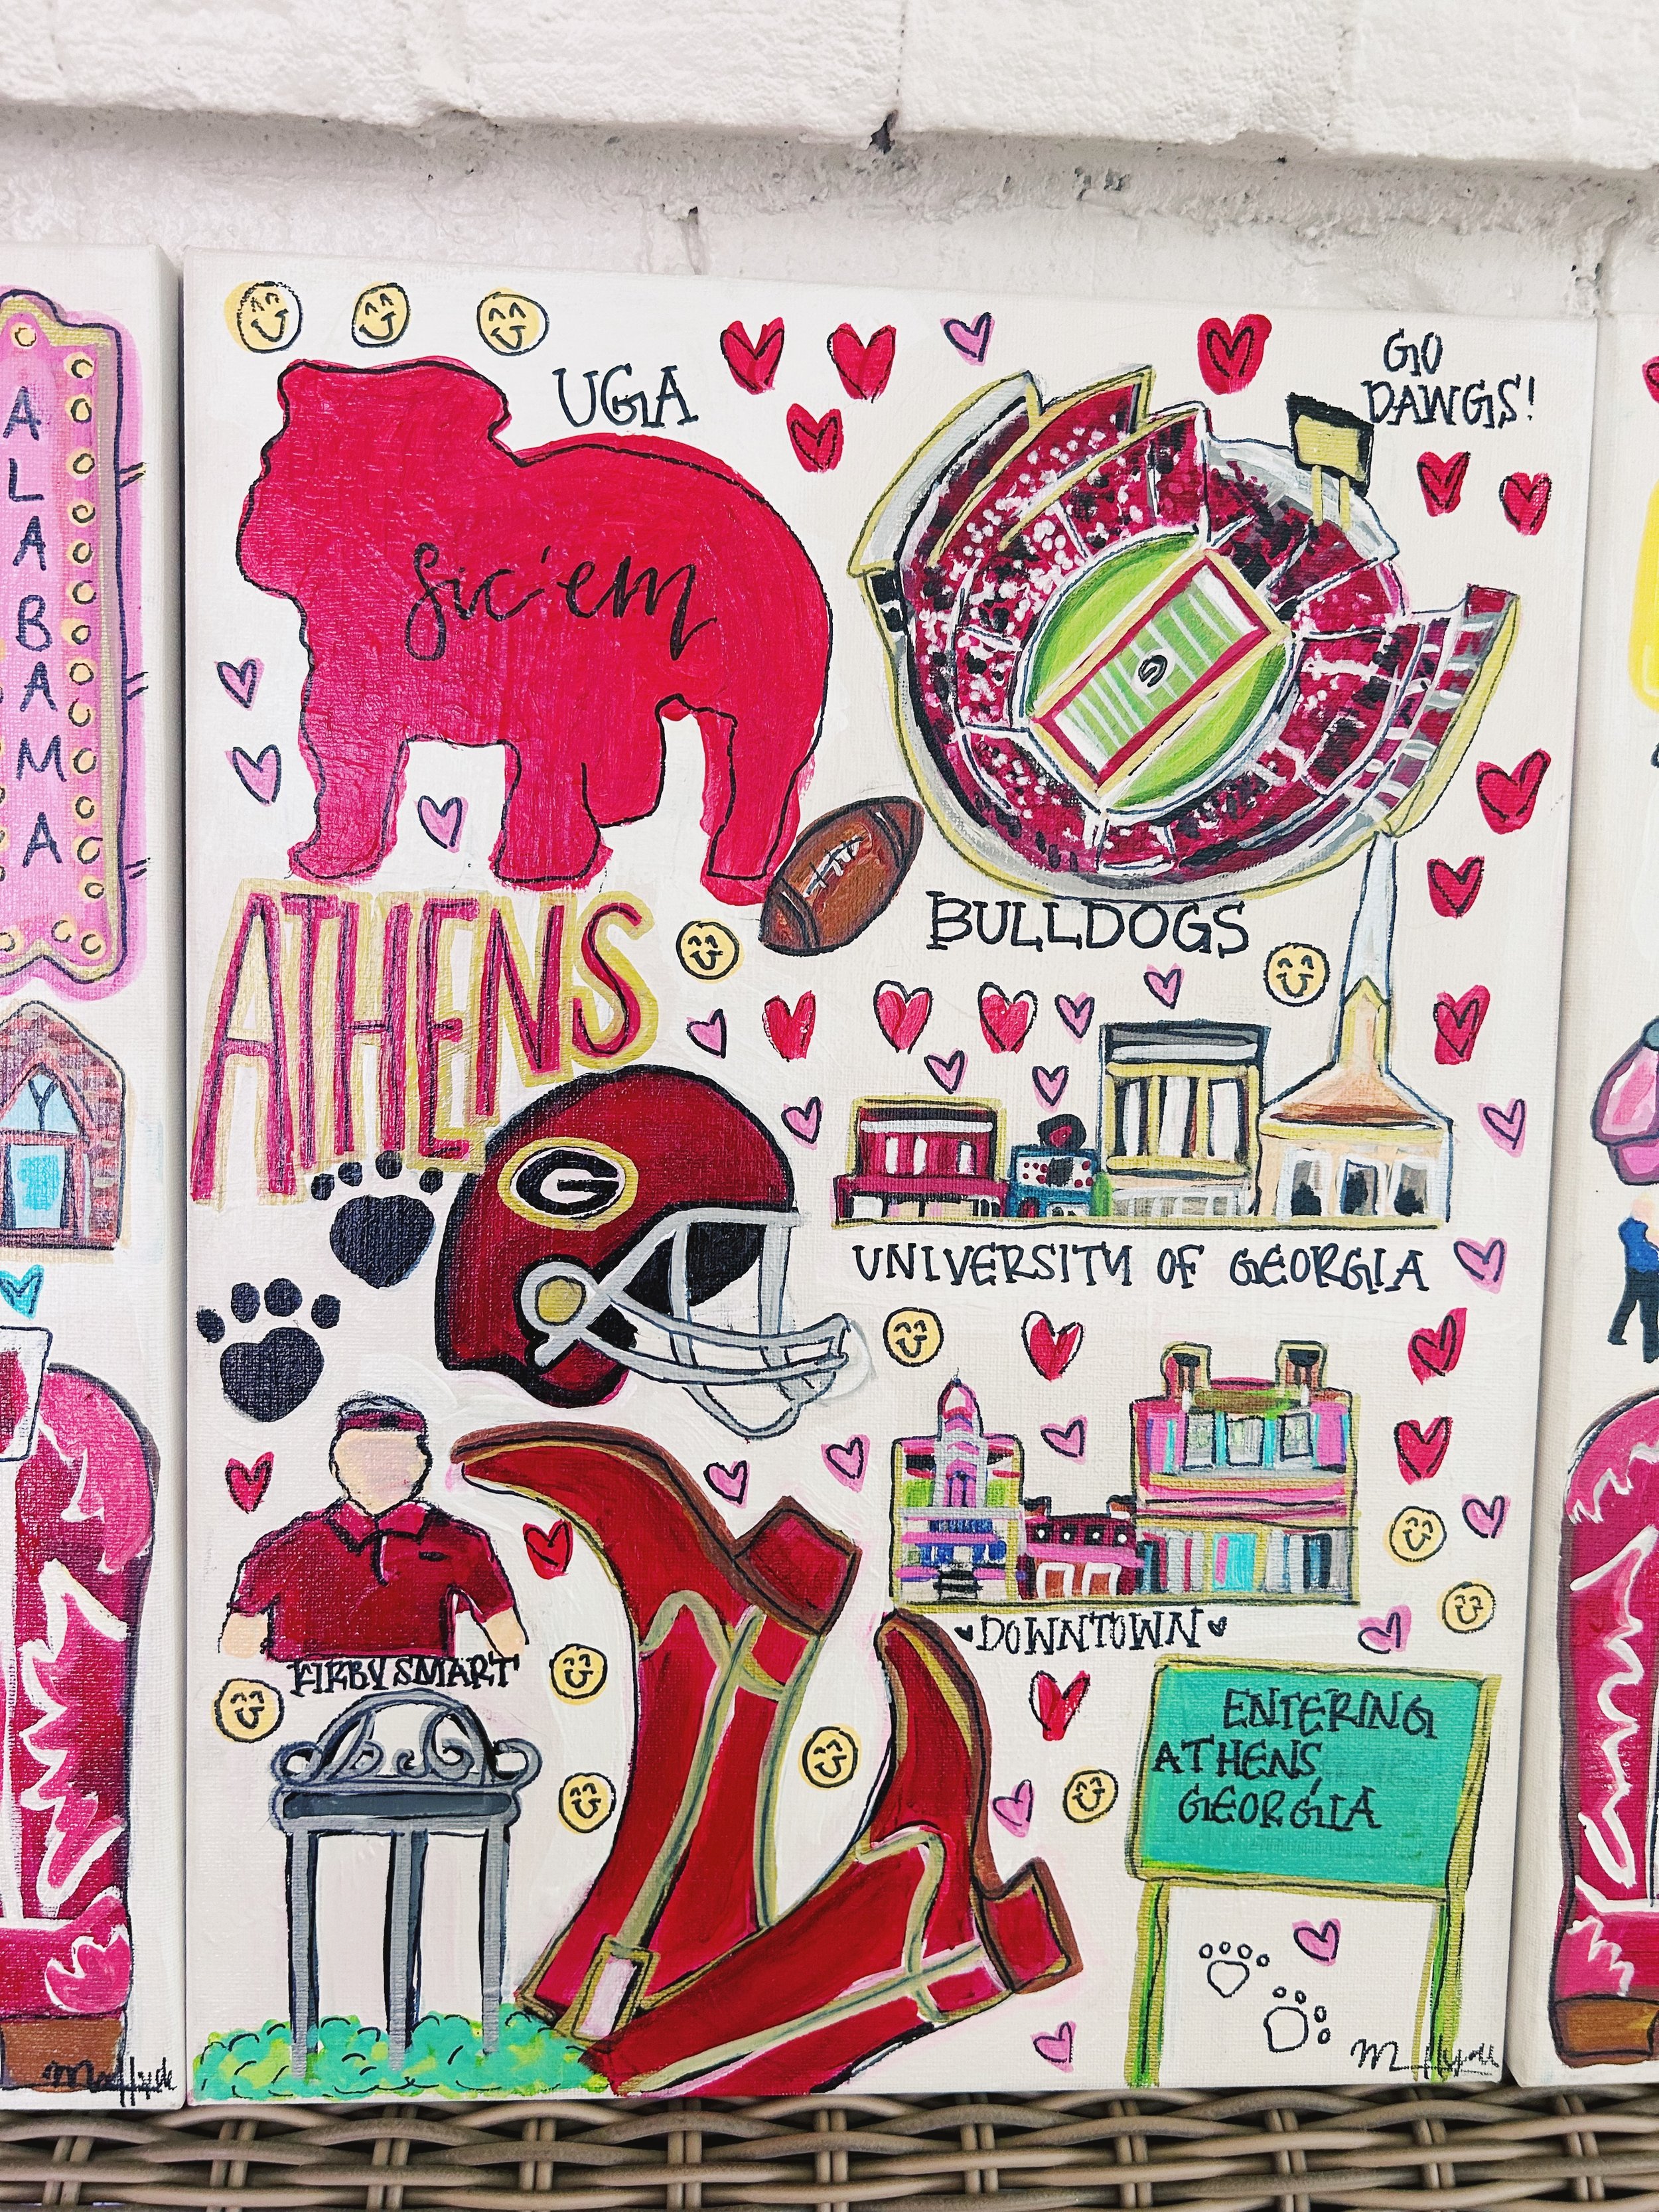 ALABAMA
UGA
GO
DAWGS!
sic'em
G
ATHENS
BULLDOGS
G
UNIVERSITY OF GEORGIA
DOWNTOWN
KIRBY SMART
ENTERING
ATHENS,
GEORGIA
M Hyde
M Hyde